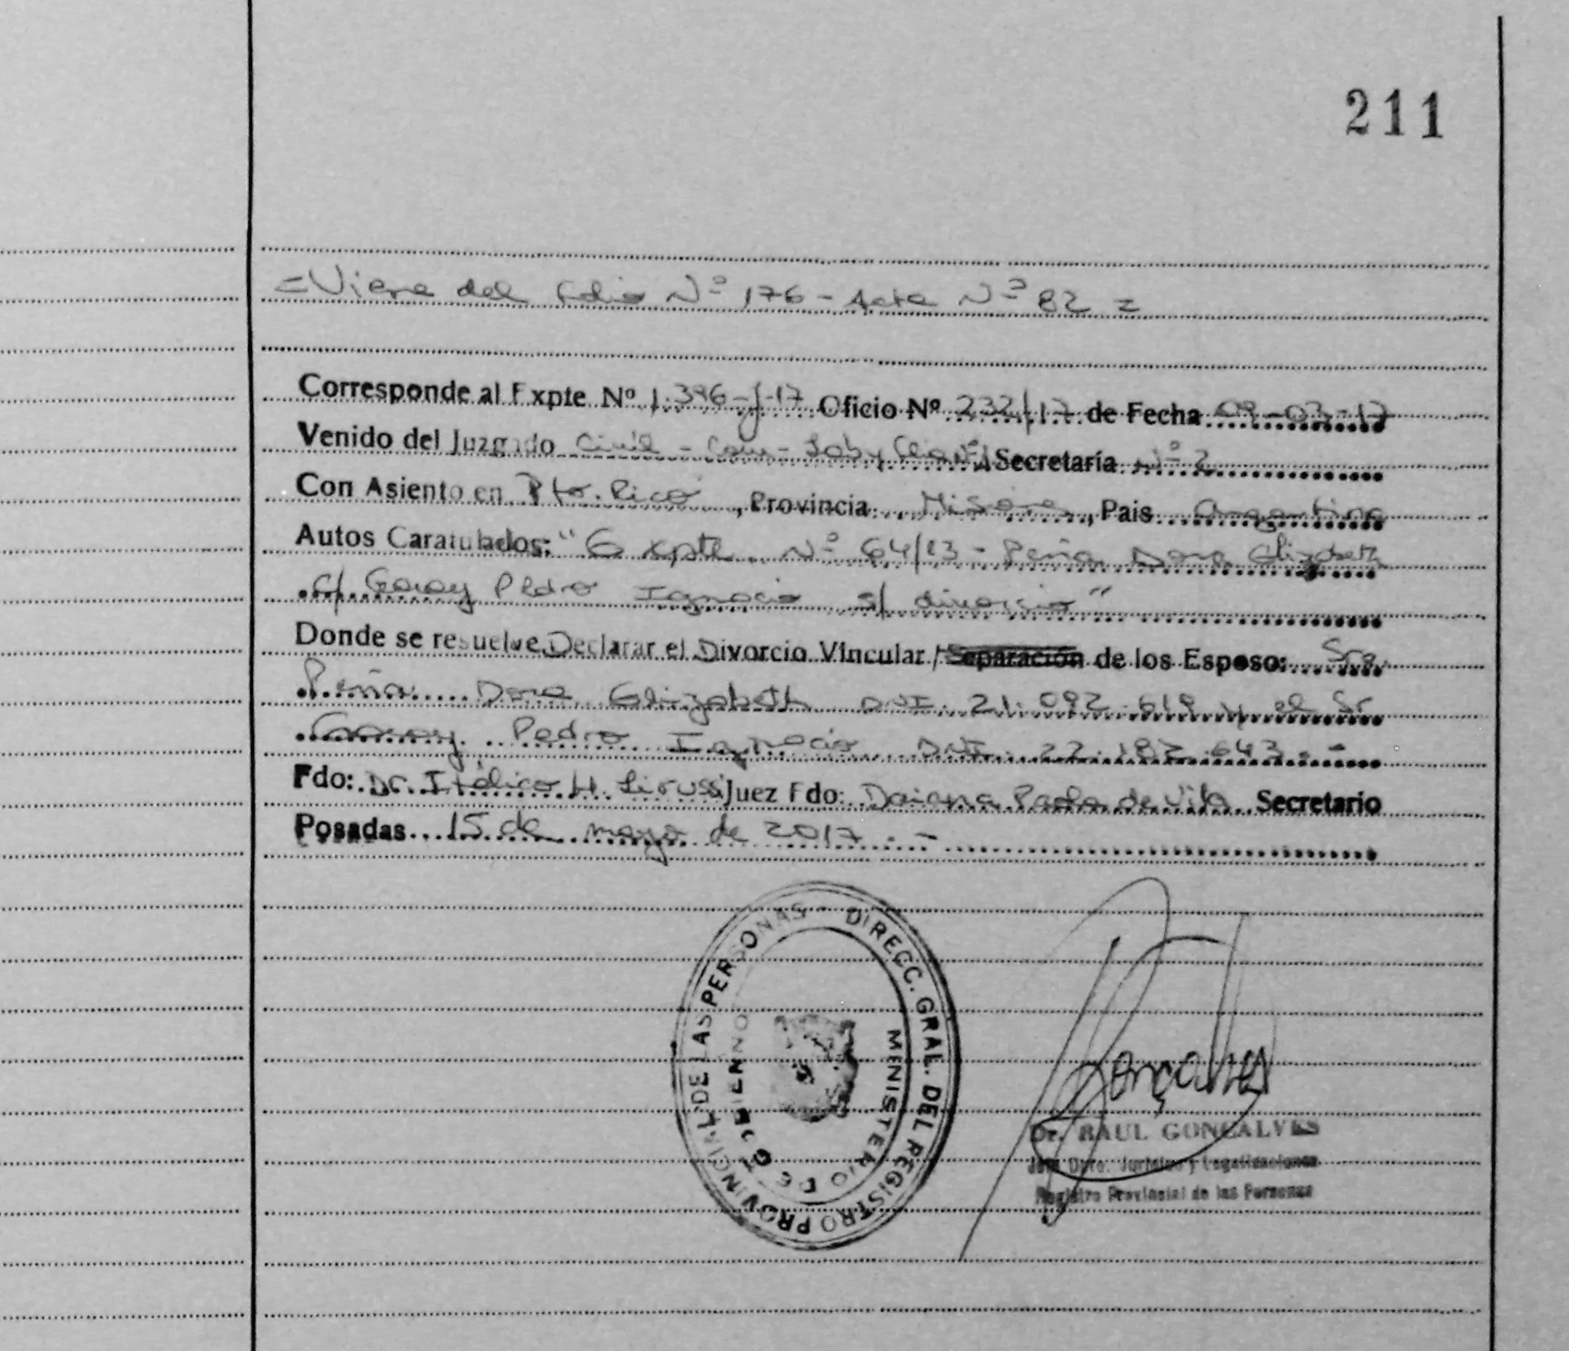 211
=Viene del folio Nº 176 - Acta Nº 82 =
Corresponde al Expte Nº 1.396-J-17 Oficio Nº 232/17 de Fecha 09-03-17
Venido del Juzgado Civil - Com - Lab y Flia Nº 1 Secretaría Nº 2
Con Asiento en Pto. Rico, Provincia Misiones, Pais Argentina
Autos Caratulados: "Expte Nº 64/13 - Peña Dora Elizabeth
c/ Garay Pedro Ignacio s/ divorcio"
Donde se resuelve Declarar el Divorcio Vincular / Separación de los Esposo: Sra.
Peña Dora Elizabeth DNI 21.092.619 y el Sr
Garay Pedro Ignacio DNI 22.187.643.-
Fdo: Dr. Itálico H. Juez Fdo: Daiana Paola de Vila Secretario
Posadas 15 de mayo de 2017.-
DIRECC. GRAL. DEL REGISTRO PROVINCIAL DE LAS PERSONAS -
MINISTERIO DE GOBIERNO
Gonçalves
Dr. RAUL GONCALVES
Jefe Dpto. Jurídico y Legalizaciones
Registro Provincial de las Personas